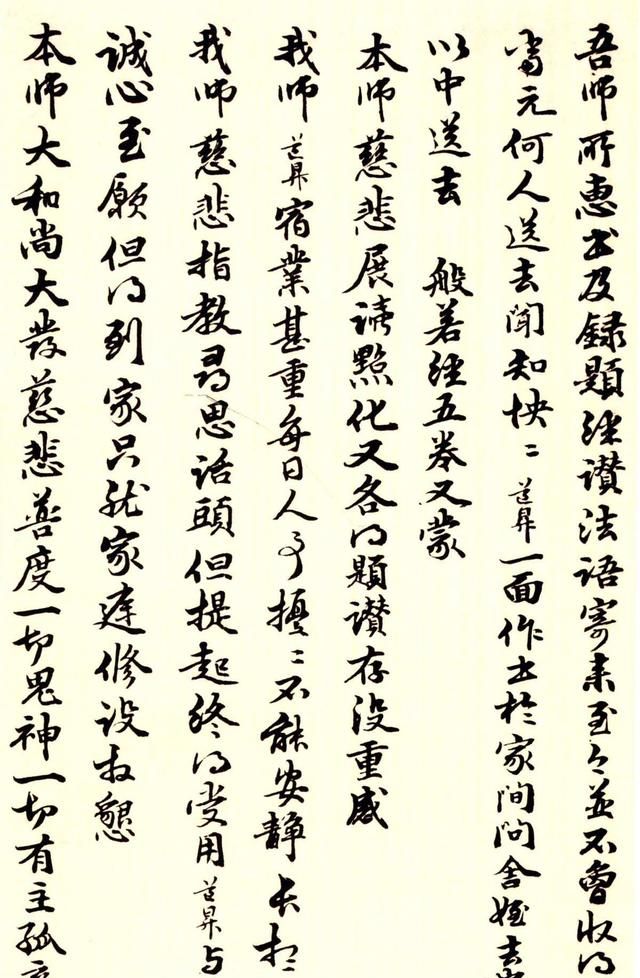 吾师所惠书及録题经讃法语寄来至今並不曾收得
当元何人送去闻知怏〻道昇一面作书於家间问舍姪去
以中送去 般若经五卷又蒙
本师慈悲展诵點化又各得题讃存没重感
我师道昇宿業甚重每日人事擾〻不能安静
我师慈悲指教尋思话頭但提起终得受用道昇与
诚心至願但得到家只就家建修设拜懇
本师大和尚大发慈悲善度一切鬼神一切有主孤